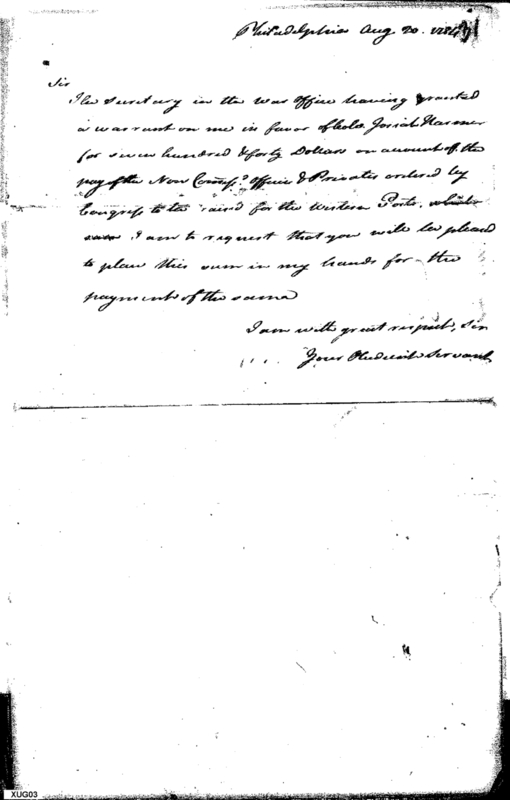 Philadelphia Aug 20. 1784
Sir
The Secretary in the War Office having granted
a warrant on me in favor of Colo. Josiah Harmer
for seven hundred & forty Dollars on account of the
pay of the Non Commissd. Officers & Privates ordered by
Congress to be raised for the Western Posts,
I am to request that you will be pleased
to place this sum in my hands for the
payment of the same
I am with great respect, Sir
Your Obedient Servant
XUG03